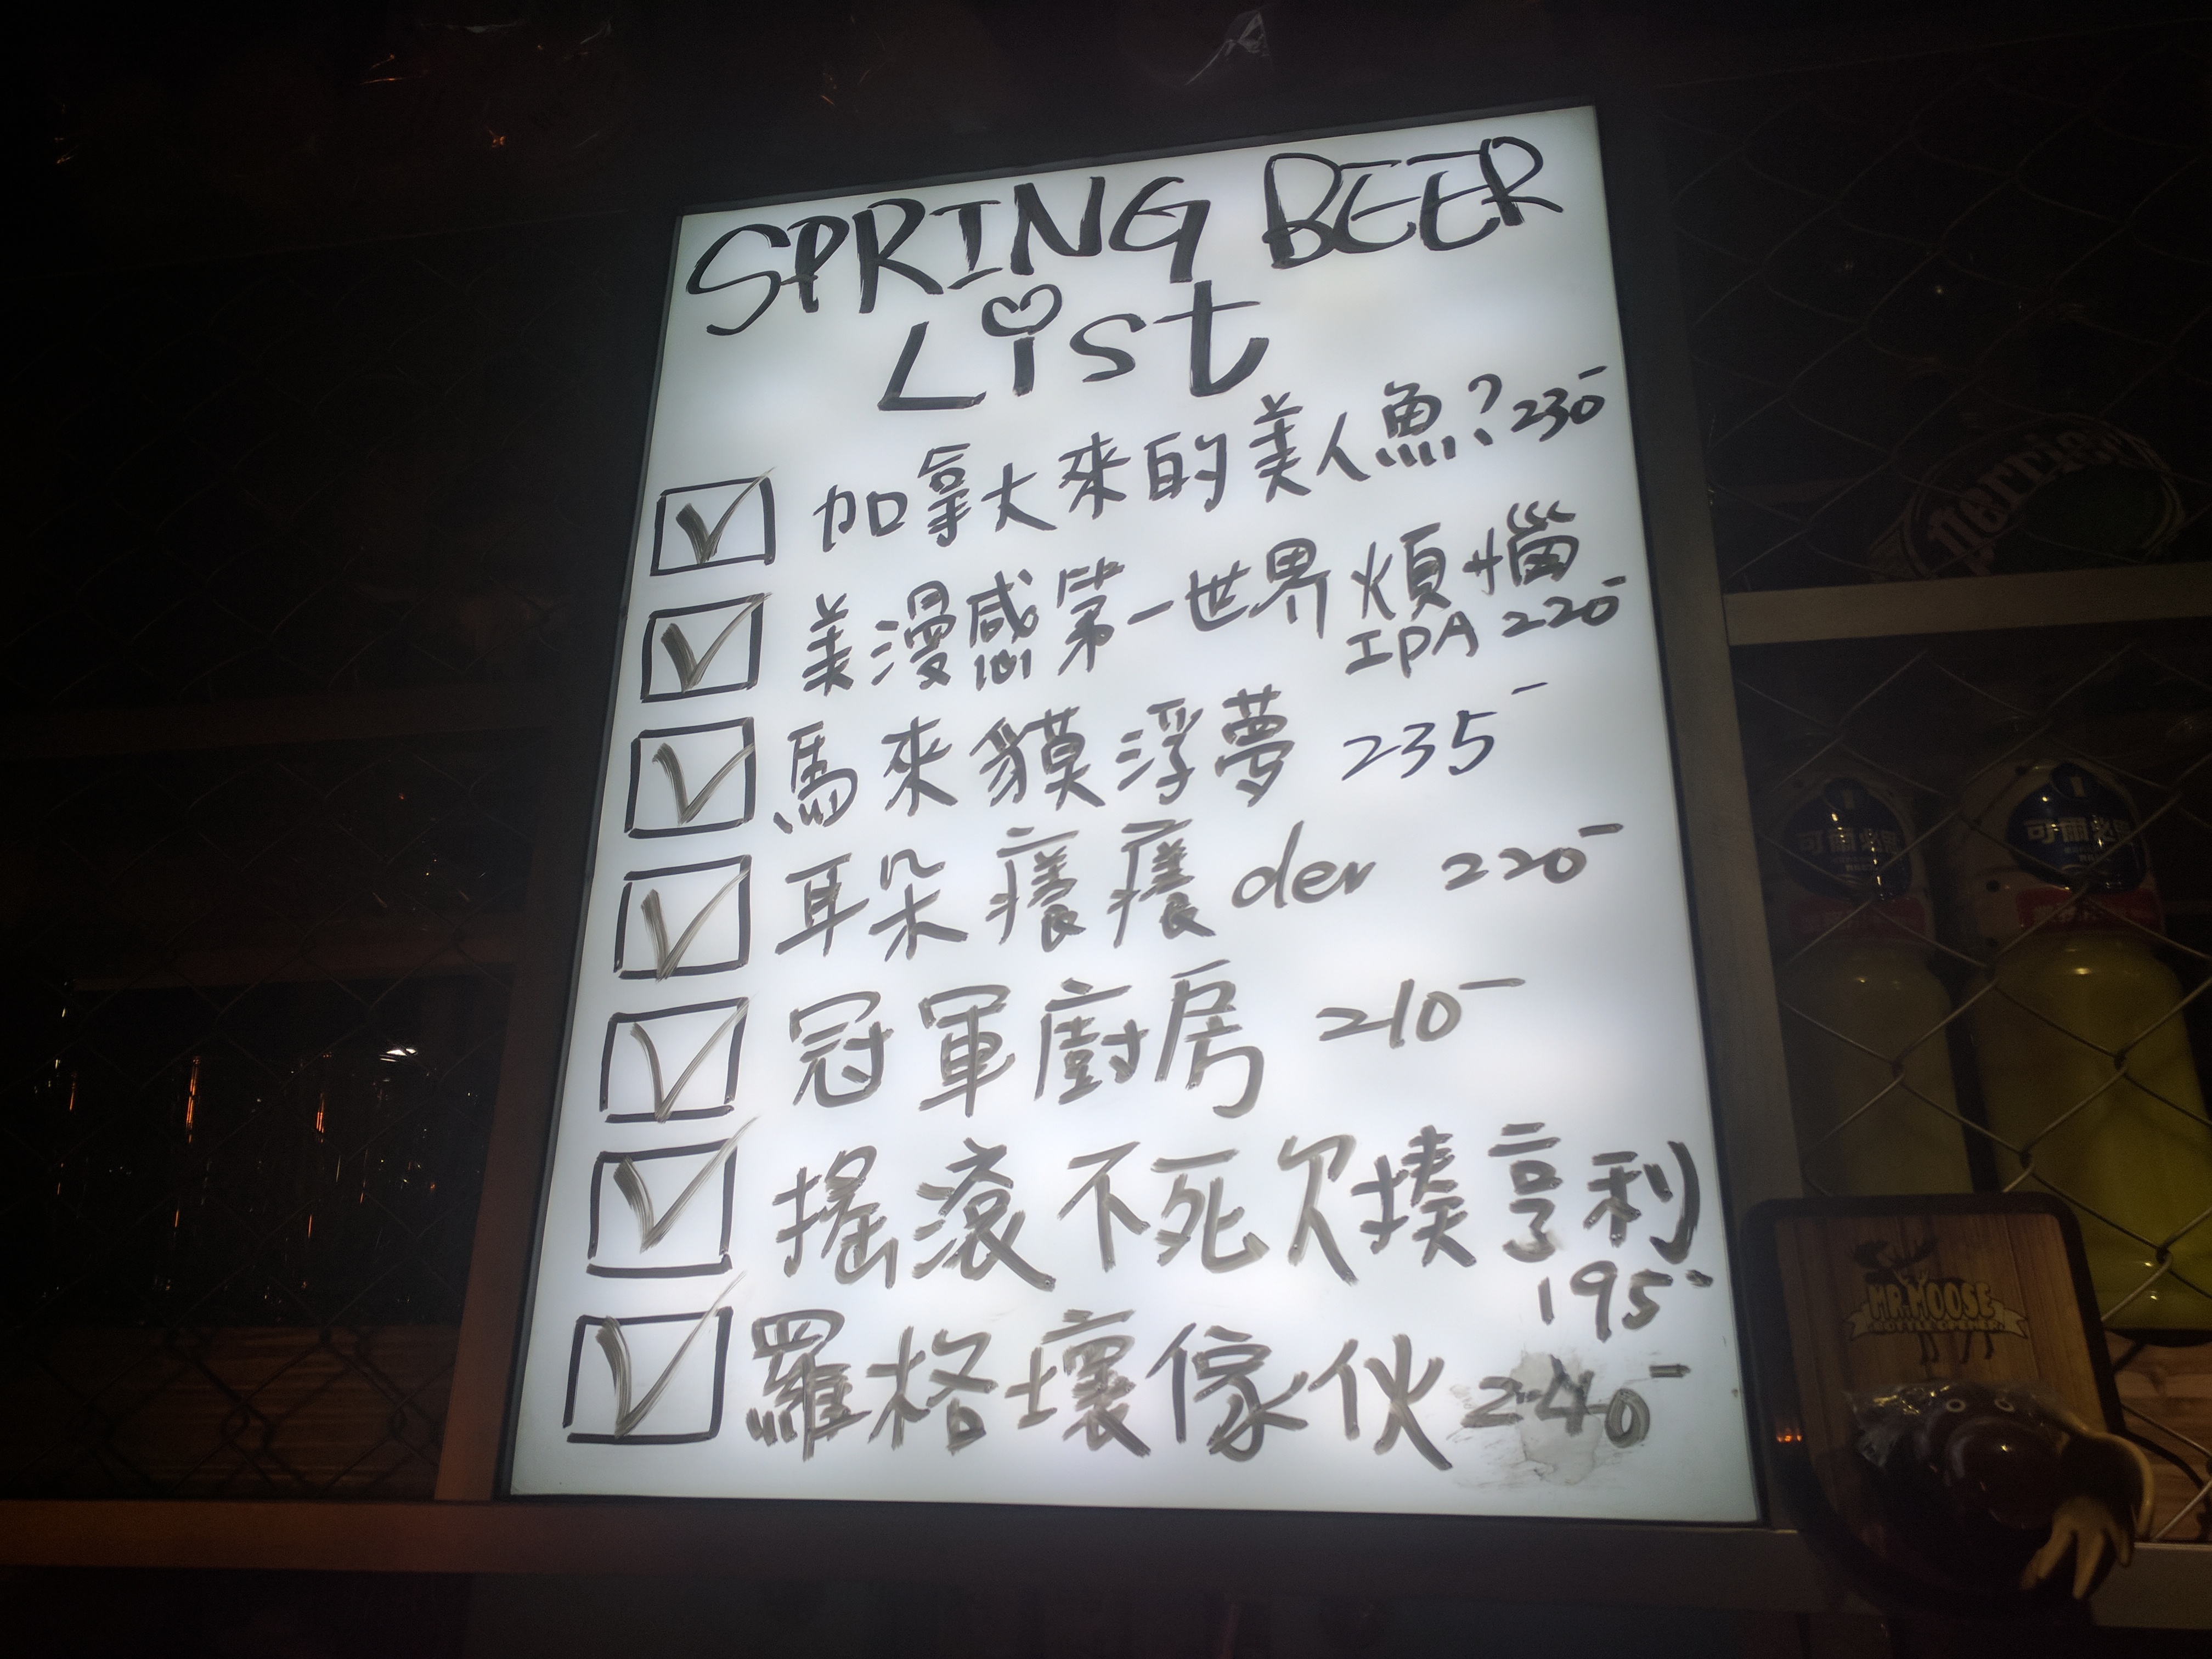 SPRING BEER
List
加拿大來的美人魚? 230-
美漫感第一世界煩惱
IPA 220-
馬來貘浮夢 235-
耳朵癢癢der 220-
冠軍廚房 210-
搖滾不死欠揍亨利
195-
羅格壞傢伙 240-
perrier
可爾必思
可爾必思
MR.MOOSE